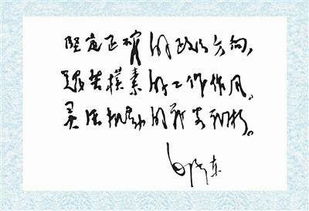 坚定正确的政治方向,
艰苦朴素的工作作风,
灵活机动的战略战术。
毛泽东